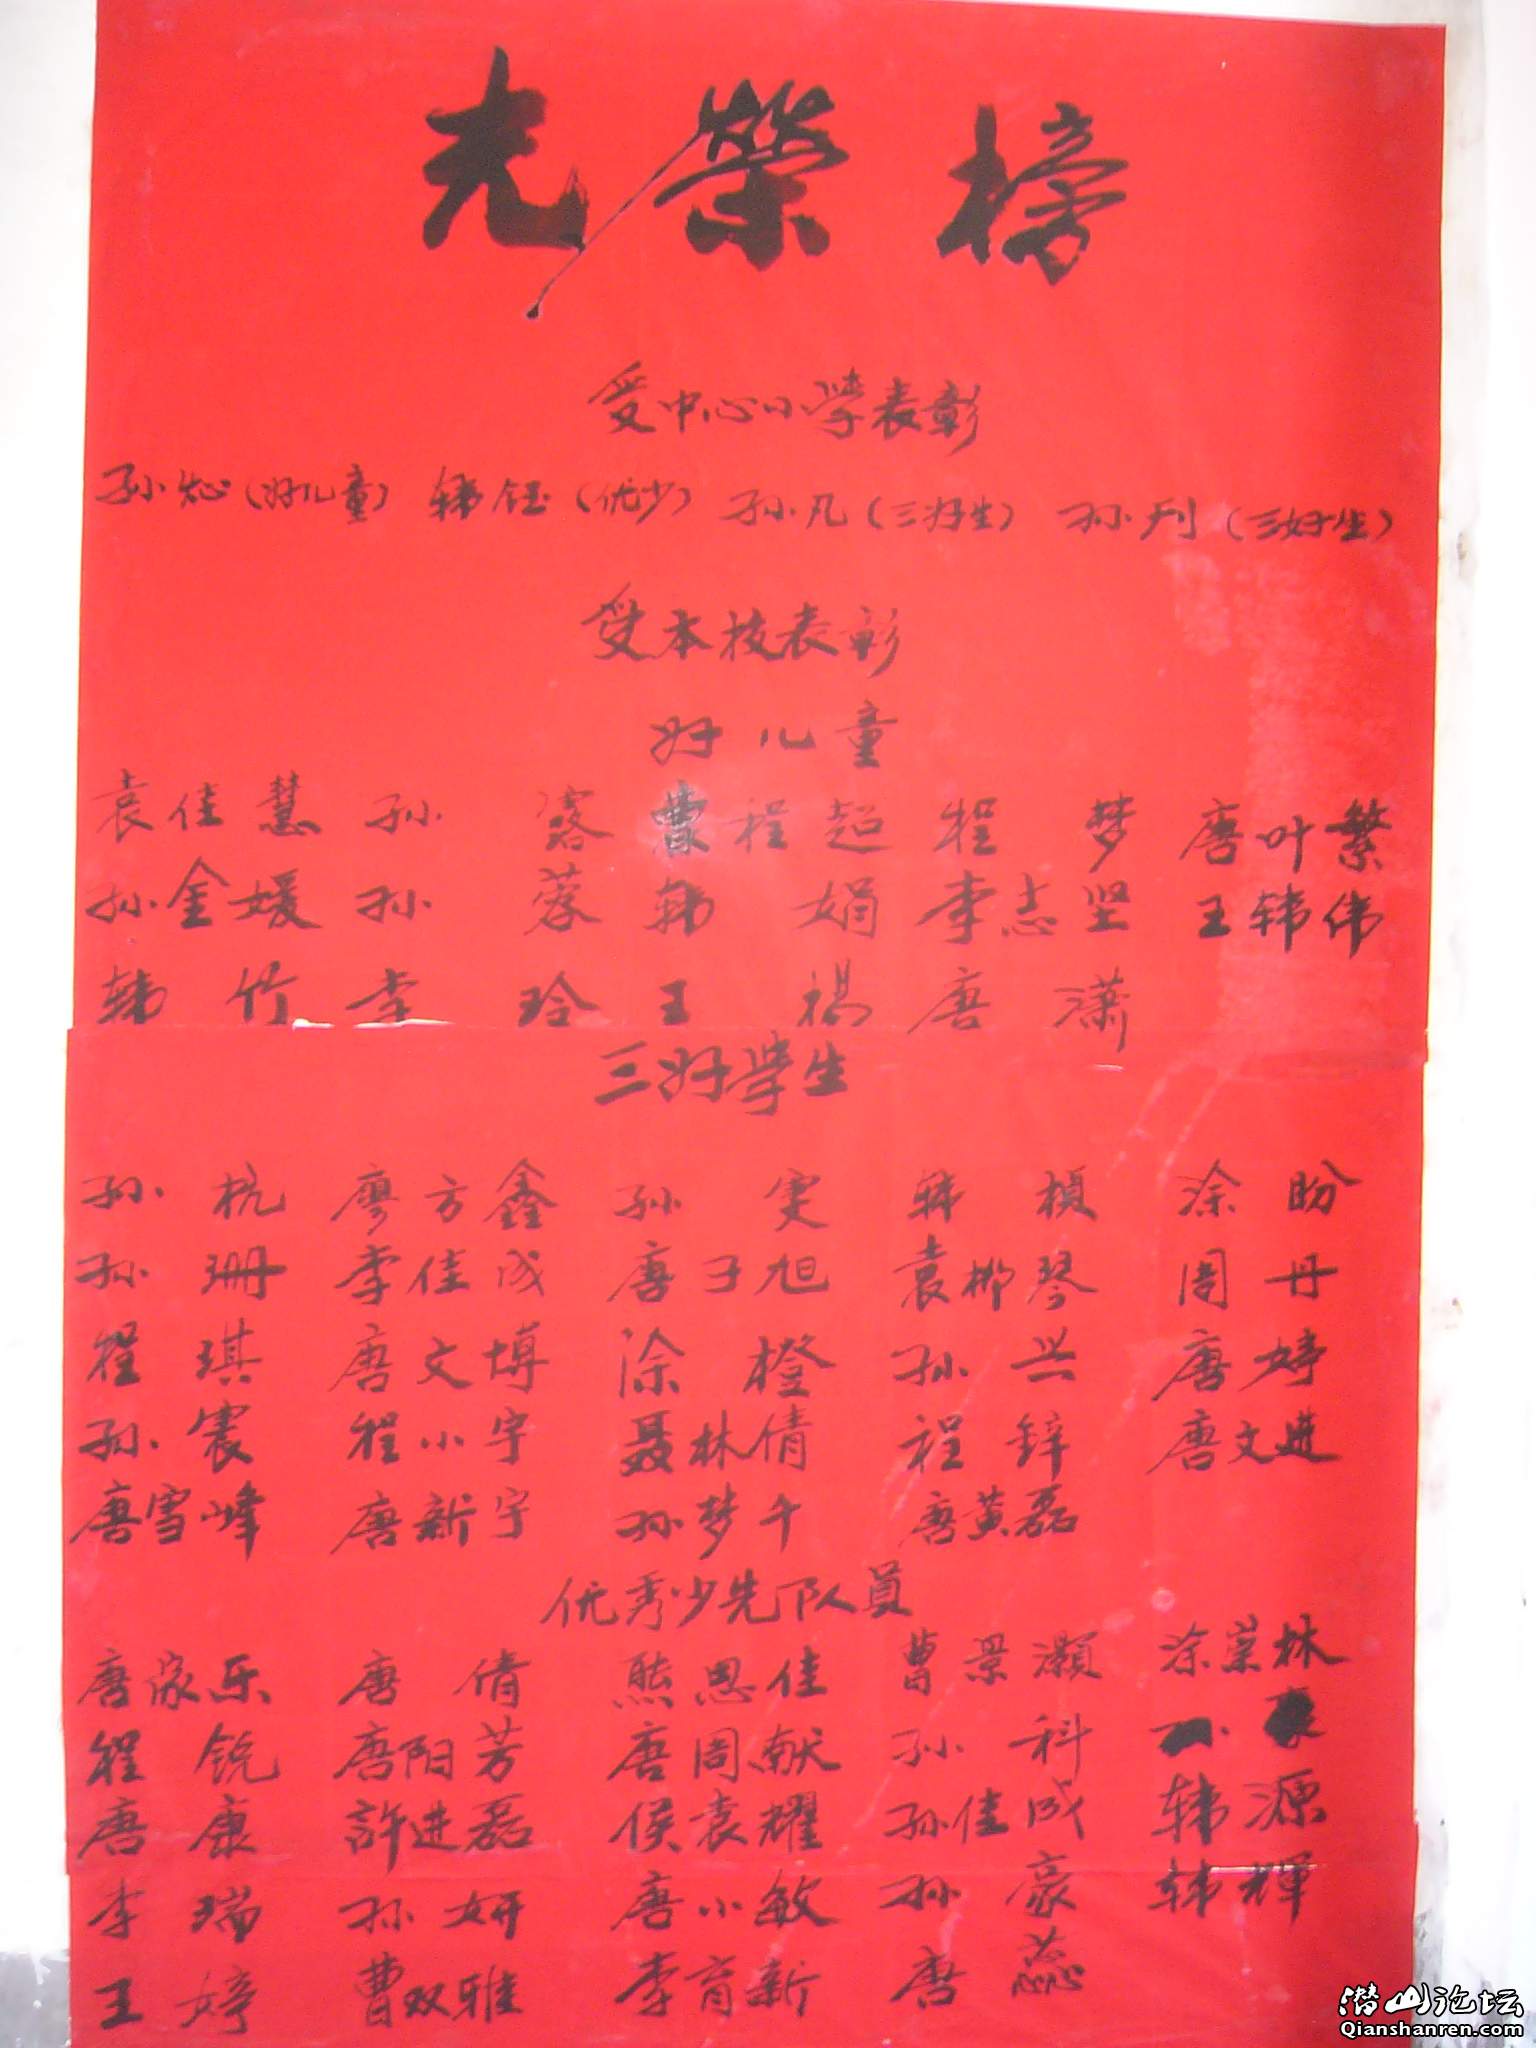 光榮榜
受中心小学表彰
孙 (好儿童) 韩钰 (优少) 孙凡 (三好生) 孙刊 (三好生)
受本校表彰
好儿童
袁佳慧 孙 曹程超 程梦 唐叶繁
孙金媛 孙蓉 韩娟 李志坚 王韩伟
韩竹 李玲 王杨 唐潇
三好学生
孙杭 廖方鑫 孙雯 韩桢 涂盼
孙珊 李佳成 唐子旭 袁柳琴 周丹
程琪 唐文博 涂橙 孙兴 唐婷
孙震 程小宇 聂林倩 程锌 唐文进
唐雪峰 唐新宇 孙梦千 唐黄磊
优秀少先队员
唐家乐 唐倩 熊思佳 曹景灏 涂崇林
程锐 唐阳芳 唐周献 孙科 孙
唐康 許进磊 侯袁耀 孙佳成 韩源
李瑞 孙妍 唐小敏 孙豪 韩輝
王婷 曹双雅 李育新 唐蕊
潜山论坛
Qianshanren.com